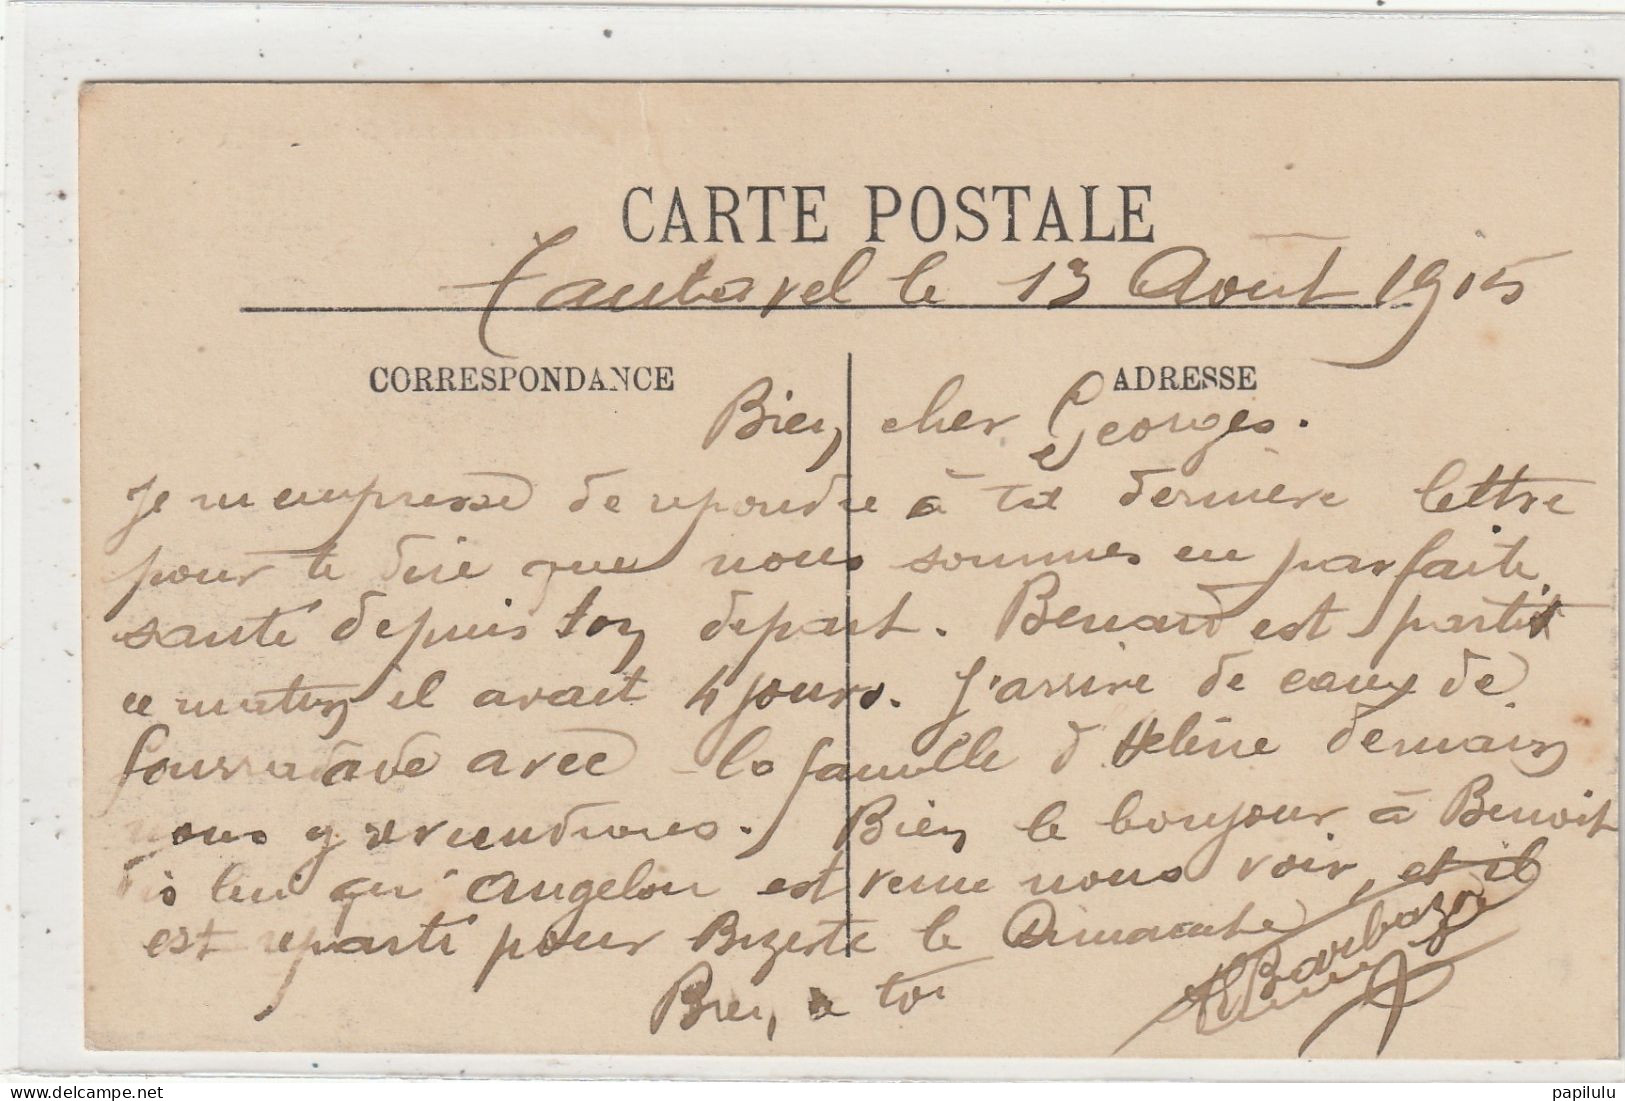 CARTE POSTALE
Tautavel le 13 Août 1915
CORRESPONDANCE
ADRESSE
Bien cher Georges.
Je m empresse de repondre à ta dernière lettre
pour te dire que nous sommes en parfaite
santé depuis ton depart. Benard est partit
ce matin il avait 4 jours. J'arrive de eaux de
foussadade avec la famille d'Helène demain
nous y reviendrons. Bien le bonjour à Benoit
dis lui qu'Angelou est venu nous voir, et il
est reparti pour Bizerte le Dimanche
Bien à toi
Barbaza
delcampe.net
papilulu